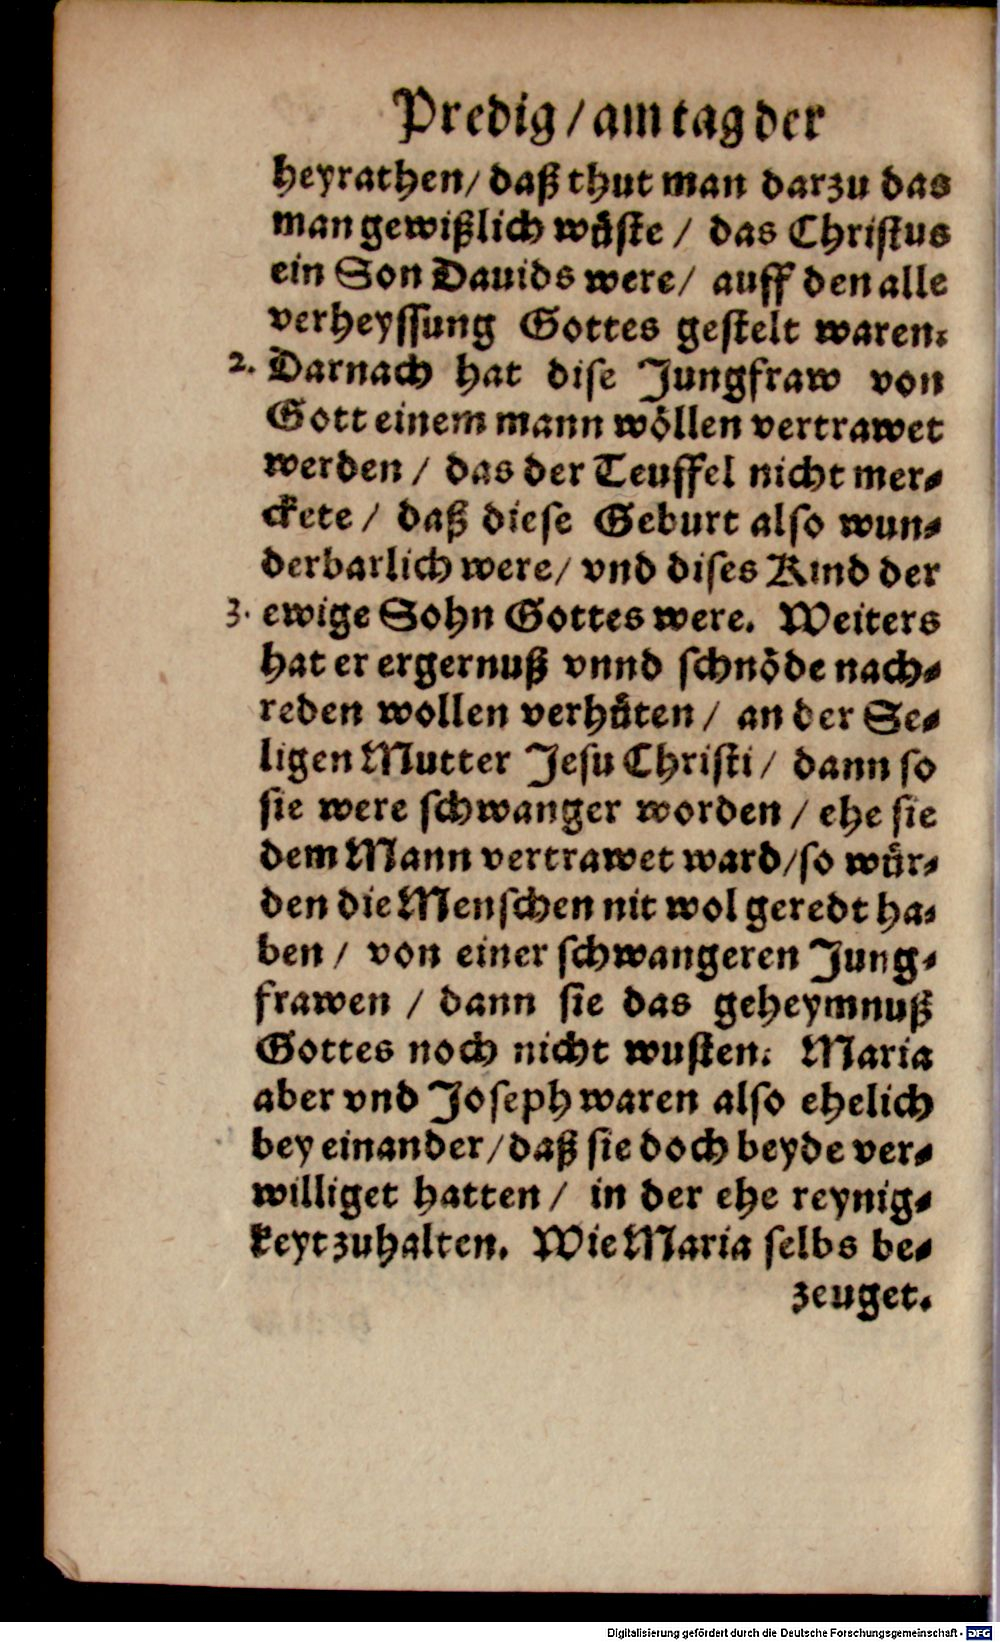 Predig / am tag der
heyrathen / daß thut man darzu das
man gewißlich wüste / das Christus
ein Son Dauids were / auff den alle
verheyssung Gottes gestelt waren.
2. Darnach hat dise Jungfraw von
Gott einem mann wöllen vertrawet
werden / das der Teuffel nicht mer-
ckete / daß diese Geburt also wun-
derbarlich were / vnd dises Kind der
3. ewige Sohn Gottes were. Weiters
hat er ergernuß vnnd schnöde nach-
reden wollen verhüten / an der Se-
ligen Mutter Jesu Christi / dann so
sie were schwanger worden / ehe sie
dem Mann vertrawet ward / so wür-
den die Menschen nit wol geredt ha-
ben / von einer schwangeren Jung-
frawen / dann sie das geheymnuß
Gottes noch nicht wusten. Maria
aber vnd Joseph waren also ehelich
bey einander / daß sie doch beyde ver-
williget hatten / in der ehe reynig-
keyt zuhalten. Wie Maria selbs be-
zeuget.
Digitalisierung gefördert durch die Deutsche Forschungsgemeinschaft - DFG